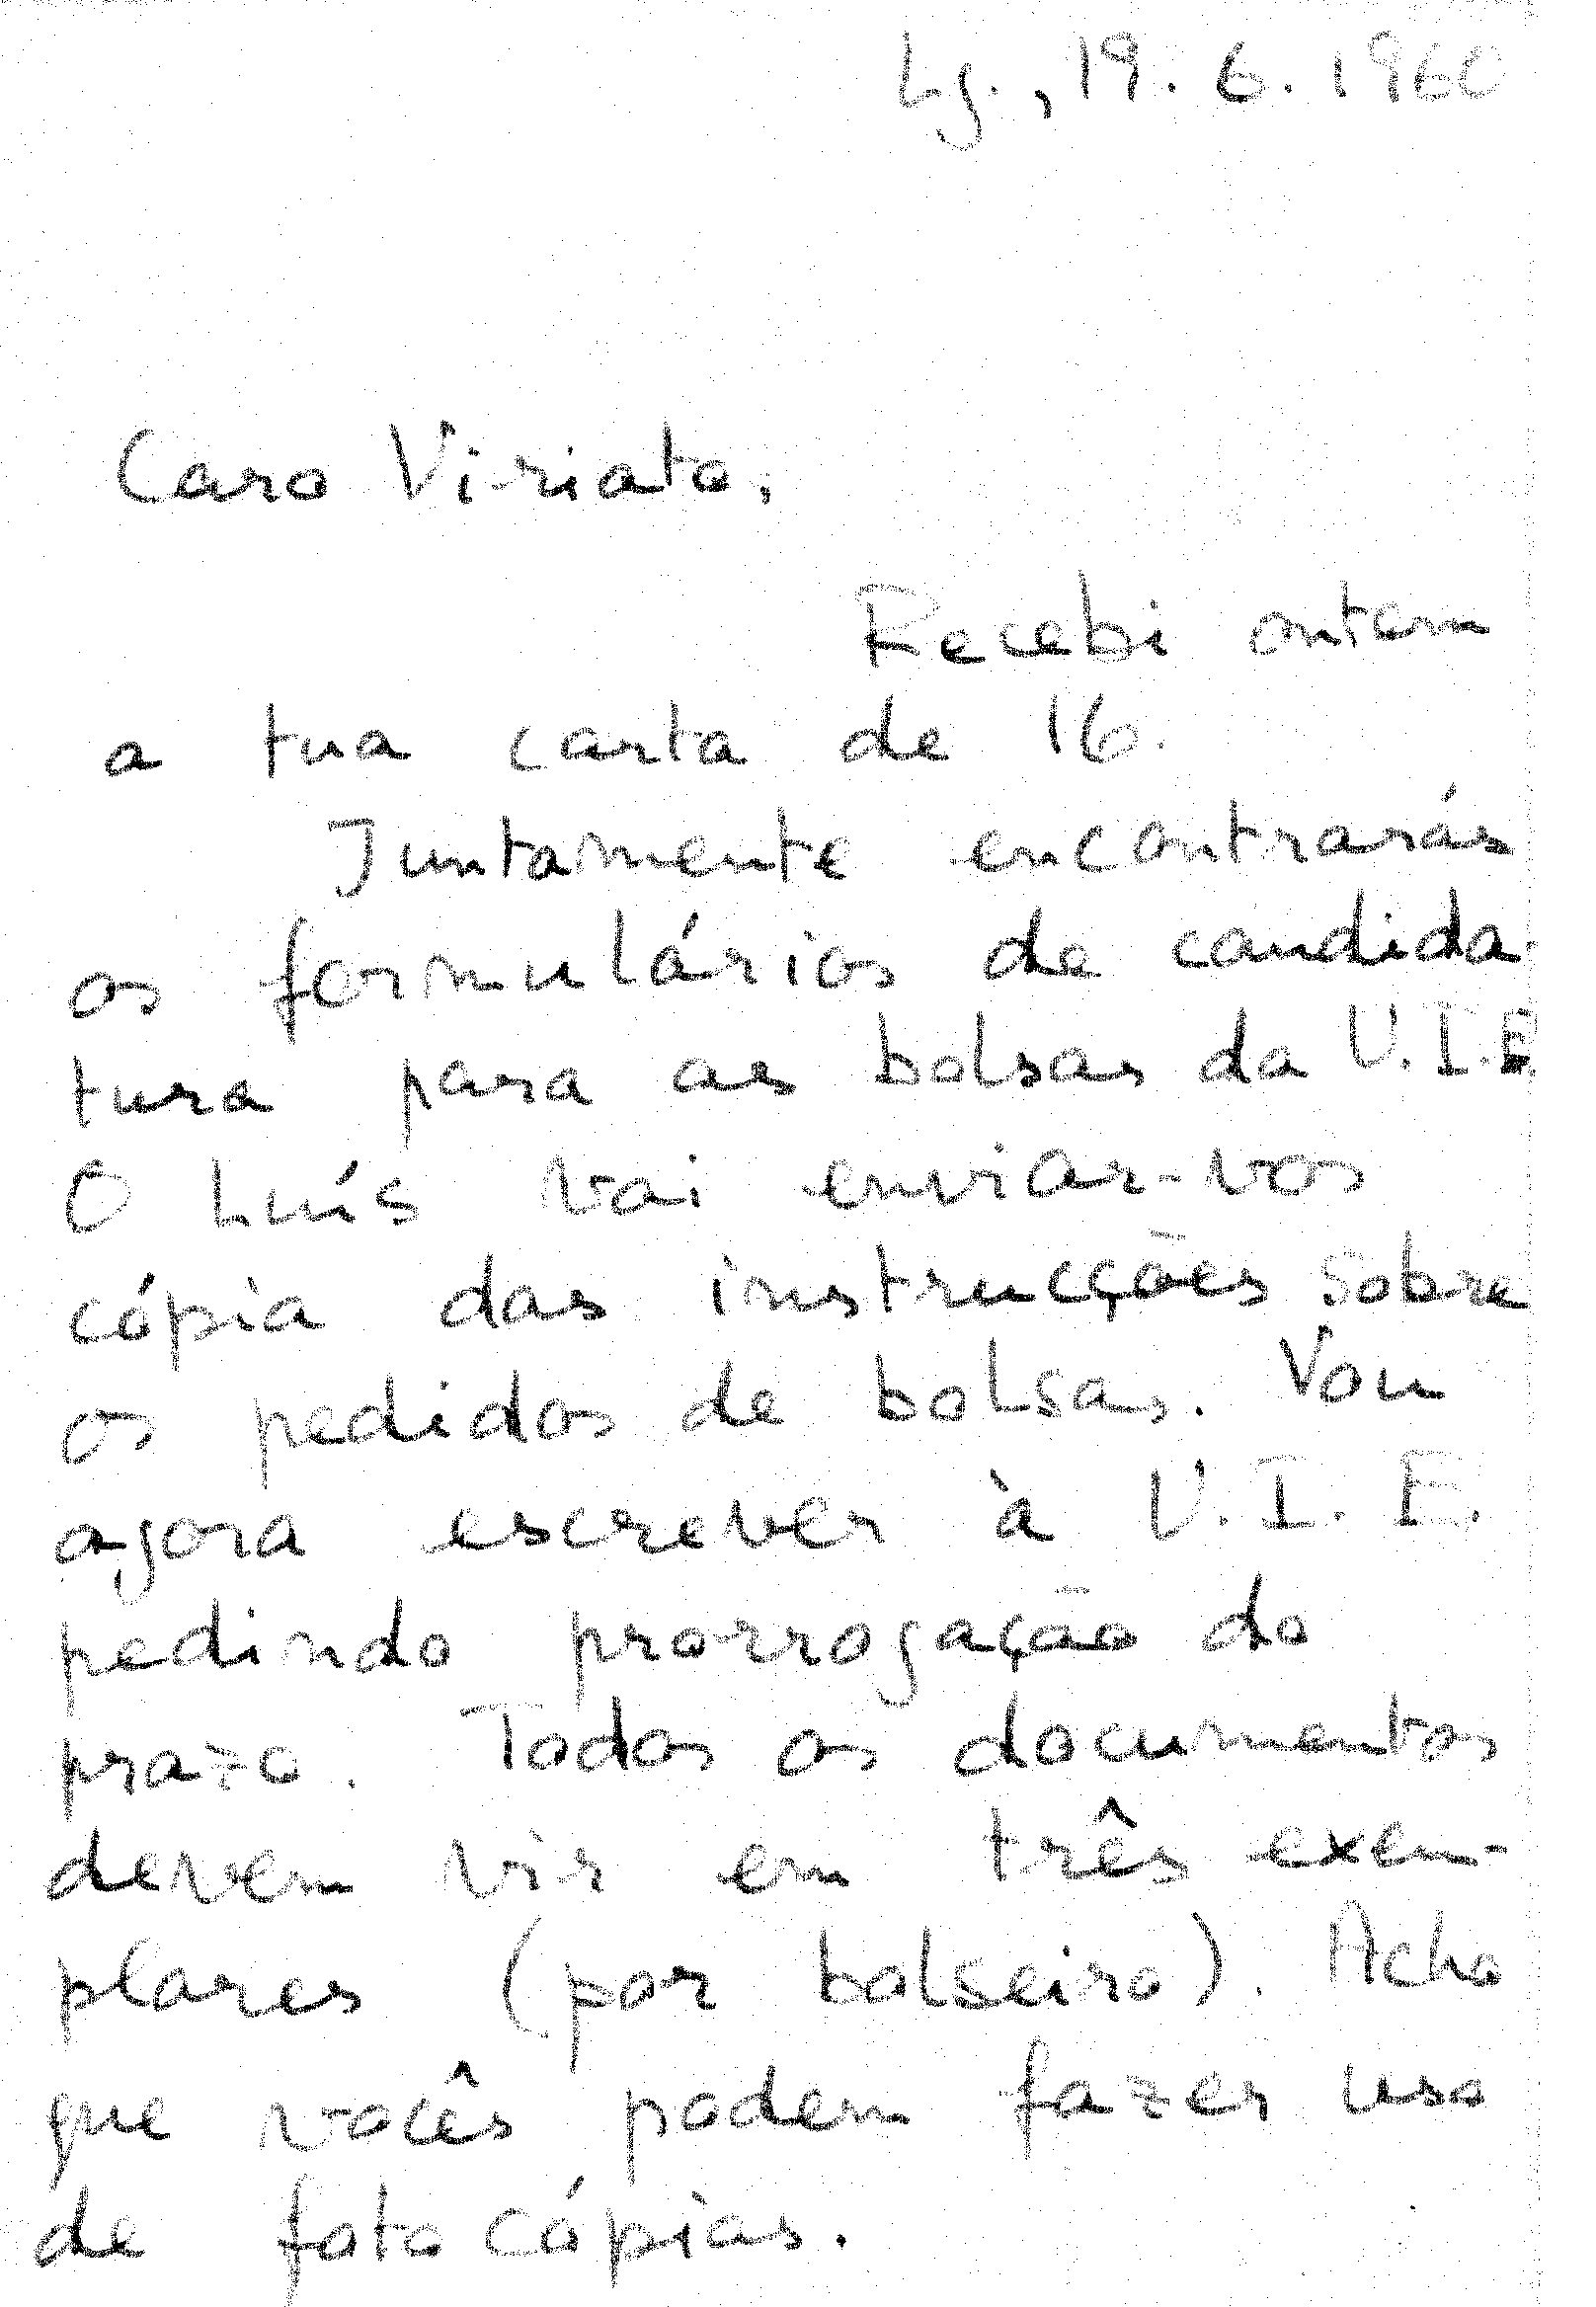 Lg., 19.6.1960
Caro Viriato,
Recebi ontem
a tua carta de 16.
Juntamente encontrarás
os formulários de candida-
tura para as bolsas da U.I.E.
O Luís vai enviar-vos
cópia das instrucções sobre
os pedidos de bolsas. Vou
agora escrever à U.I.E.
pedindo prorrogação do
prazo. Todos os documentos
devem vir em três exem-
plares (por bolseiro). Acho
que vocês podem fazer uso
de fotocópias.